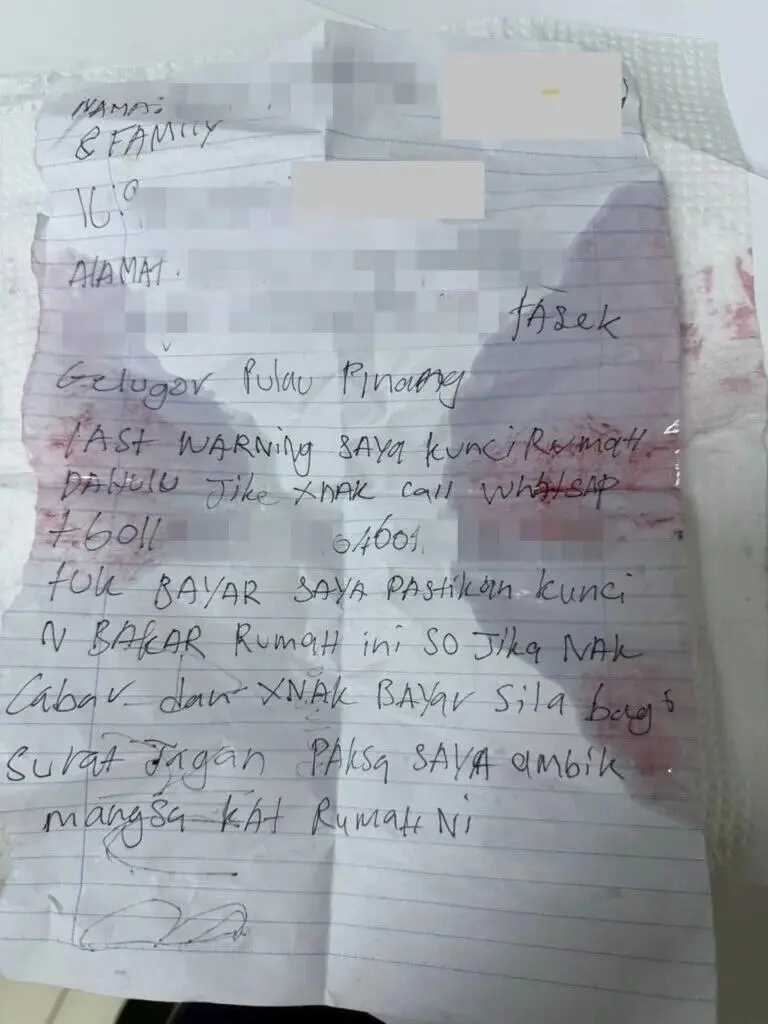 NAMA:
& FAMILY
ALAMAT.
tASek
Gelugor Pulau Pinang
LASt WARNing SAYA kunci RumAH
DAHULU Jike XNAK call WhAtSAP
+6011 04601
tUK BAYAR SAYA PAStikan kunci
N BAKAR RumAH ini SO Jika NAK
Cabar dan XNAK BAYAr Sila bagi
Surat Jagan PAksa SAYA ambik
mangSa KAt RumAH Ni